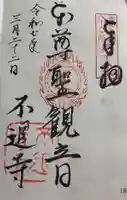 奉拝
本尊聖観音
令和七年
三月二十二日
不退寺